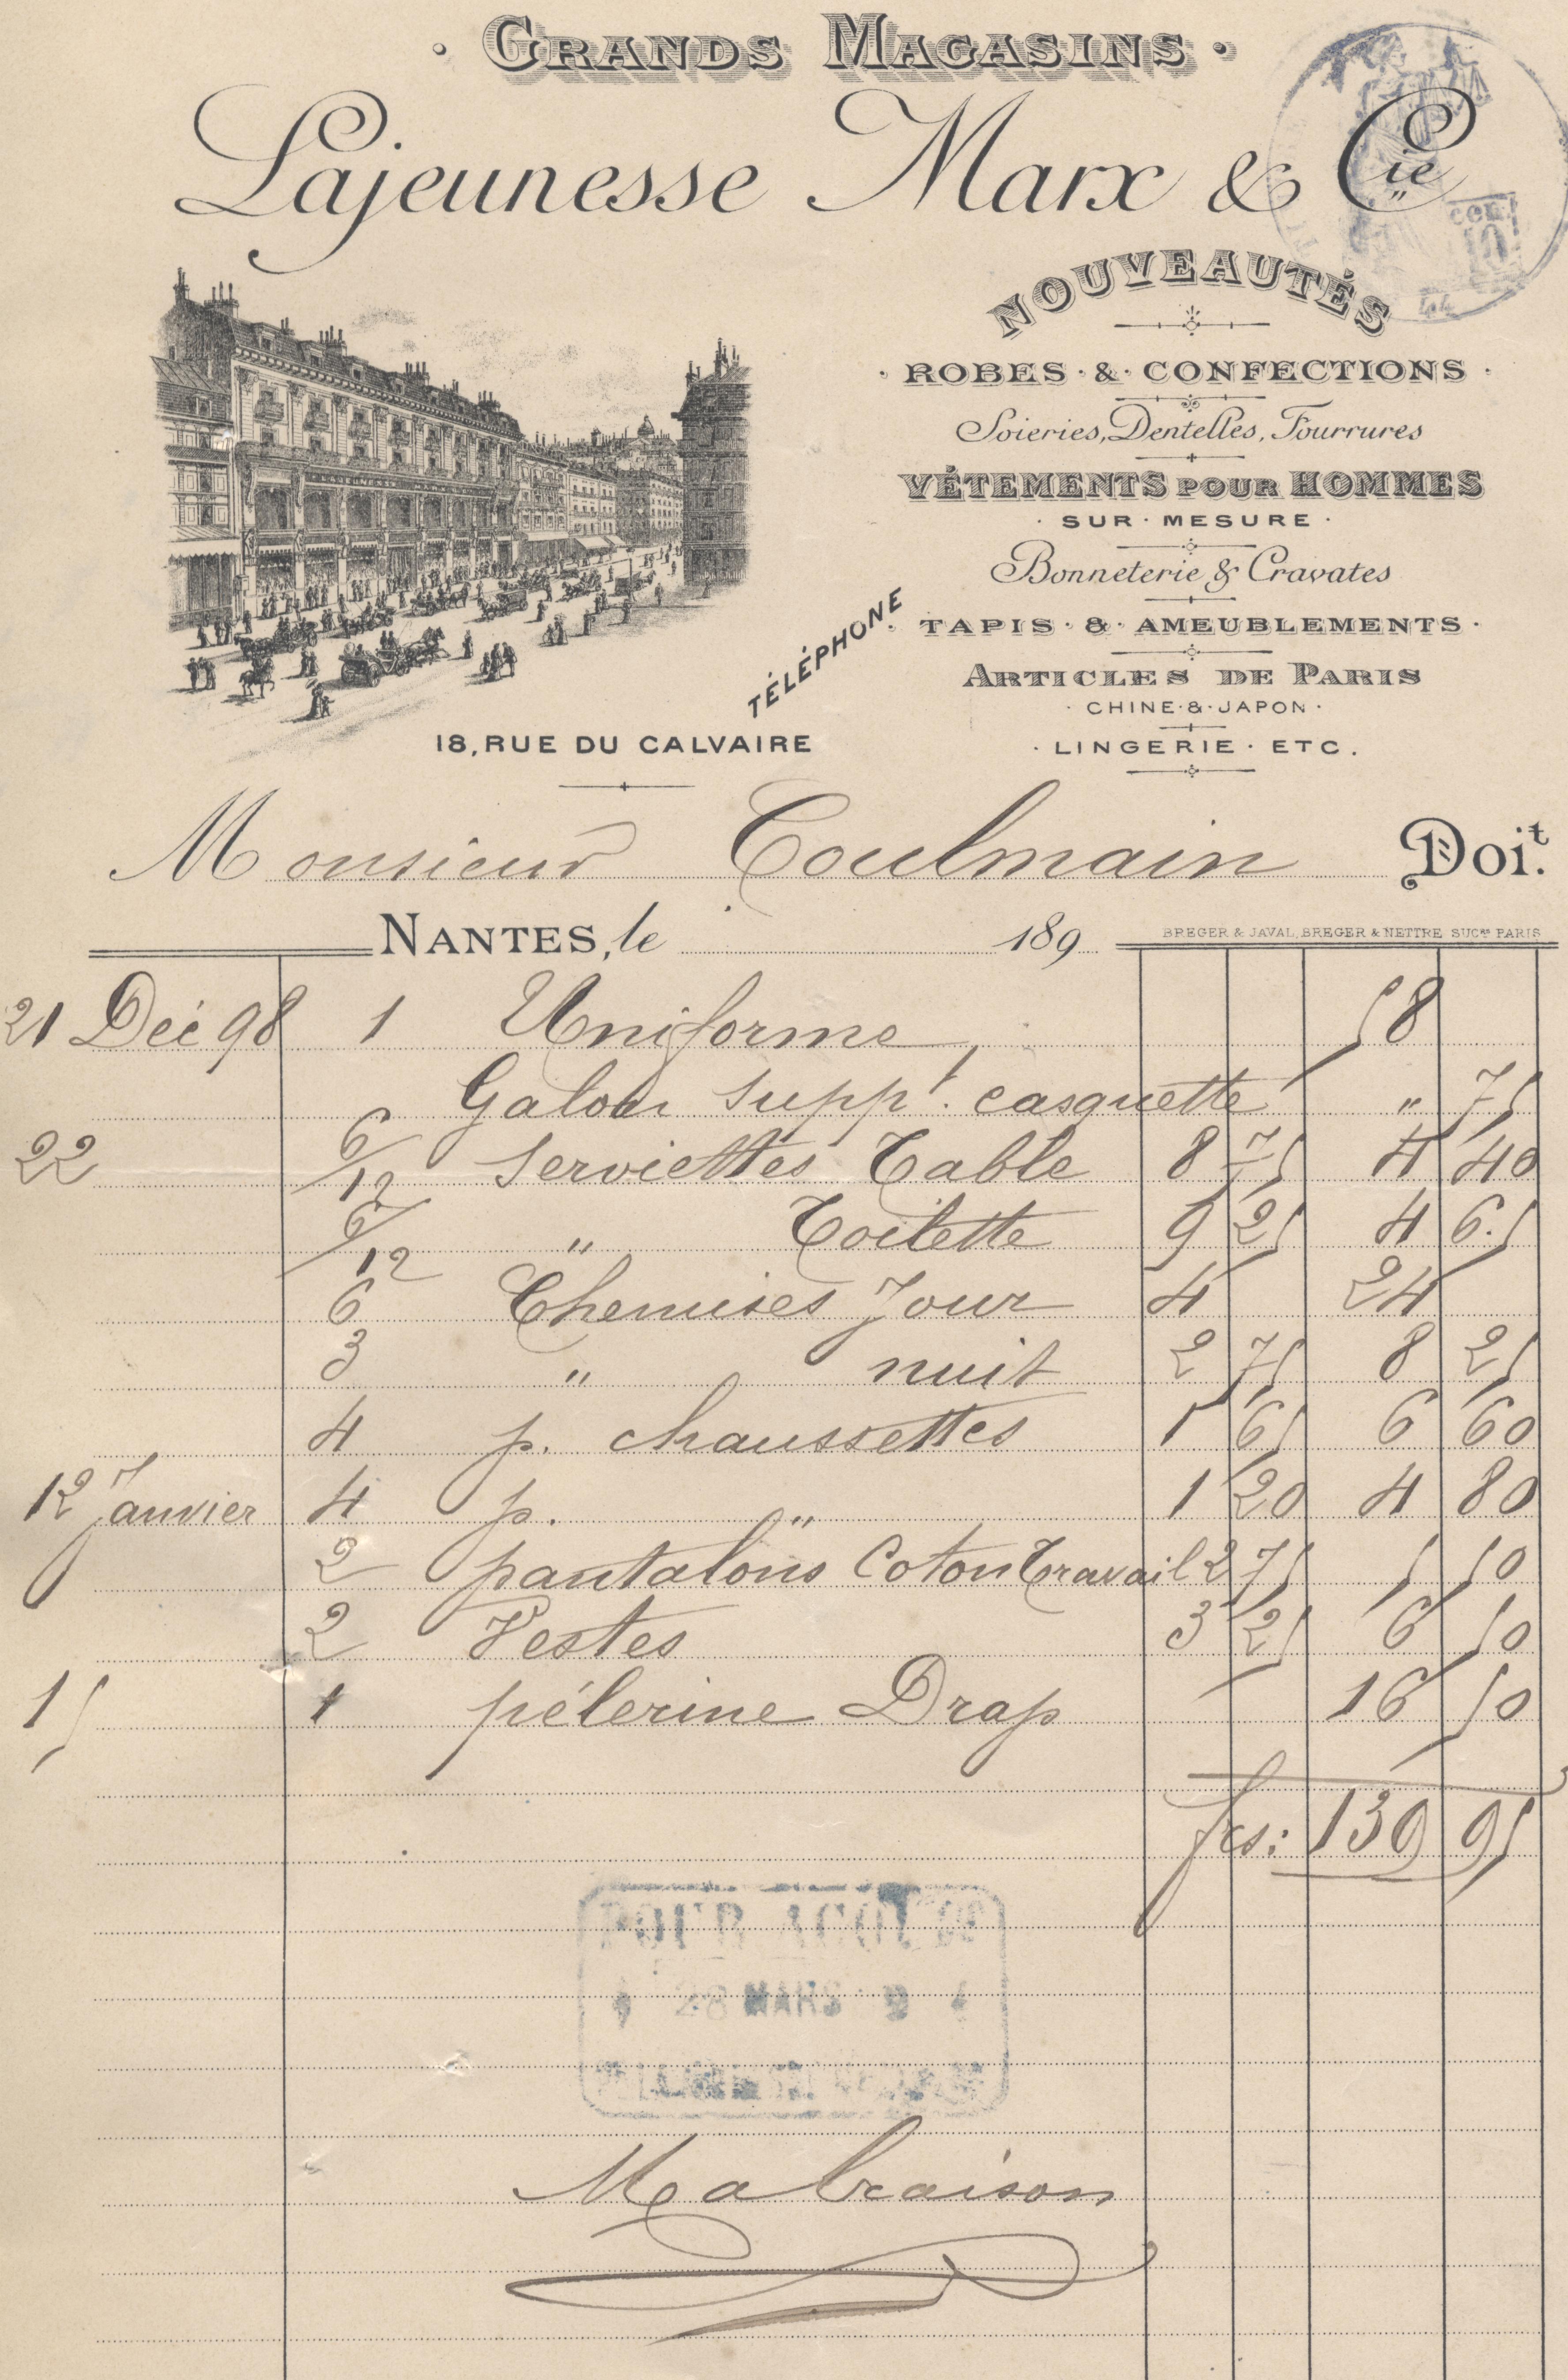 GRANDS MAGASINS
Lajeunesse Marx & Cie
cen. 10
44
NOUVEAUTÉS
ROBES & CONFECTIONS
Soieries, Dentelles, Fourrures
VÊTEMENTS POUR HOMMES
SUR MESURE
Bonneterie & Cravates
TAPIS & AMEUBLEMENTS
ARTICLES DE PARIS
CHINE & JAPON
LINGERIE ETC.
LAJEUNESSE
TÉLÉPHONE
18, RUE DU CALVAIRE
Monsieur Coulmain Doit.
NANTES, le 189
BREGER & JAVAL, BREGER & NETTRE SUCrs PARIS
21 Déc 98 1 Uniforme 58
Galon suppt. casquette " 75
22 6/12 Serviettes Table 8 75 4 40
6/12 " Toilette 9 25 4 65
6 Chemises Jour 4 24
3 " nuit 2 75 8 25
4 p. chaussettes 1 65 6 60
12 Janvier 4 p. " 1 20 4 80
2 pantalons Coton Travail 2 75 5 50
2 Vestes 3 25 6 50
15 1 pélerine Drap 16 50
frs: 139 95
POUR
28 MARS 9
Malraison